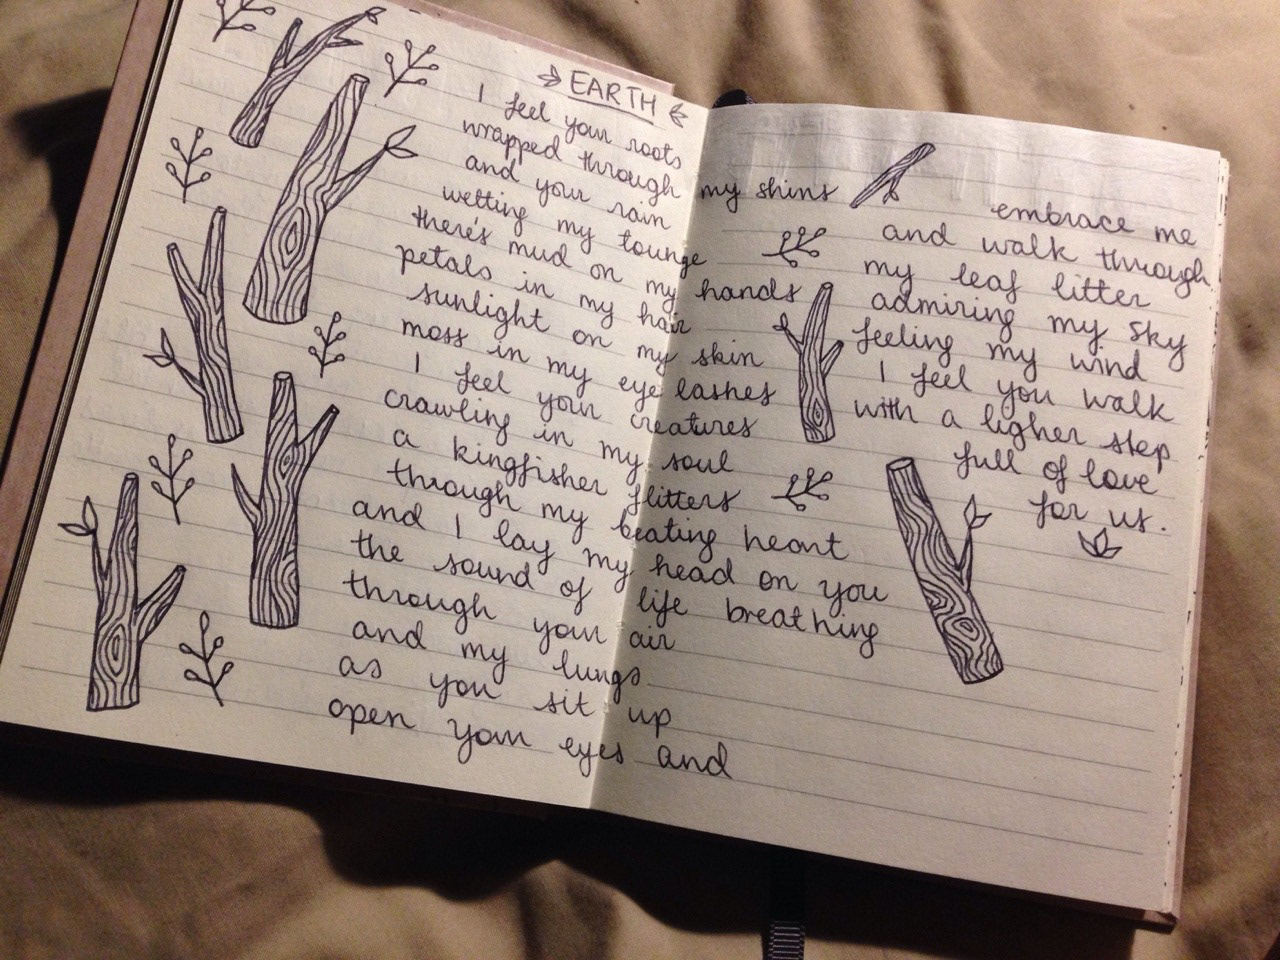 EARTH
I feel your roots
wrapped through my shins
and your rain
wetting my tounge
there's mud on my hands
petals in my hair
sunlight on my skin
moss in my eye lashes
I feel your creatures
crawling in my soul
a kingfisher flitters
through my beating heart
and I lay my head on you
the sound of life breathing
through your air
and my lungs
as you sit up
open your eyes and
embrace me
and walk through
my leaf litter
admiring my sky
feeling my wind
I feel you walk
with a ligher step
full of love
for us.